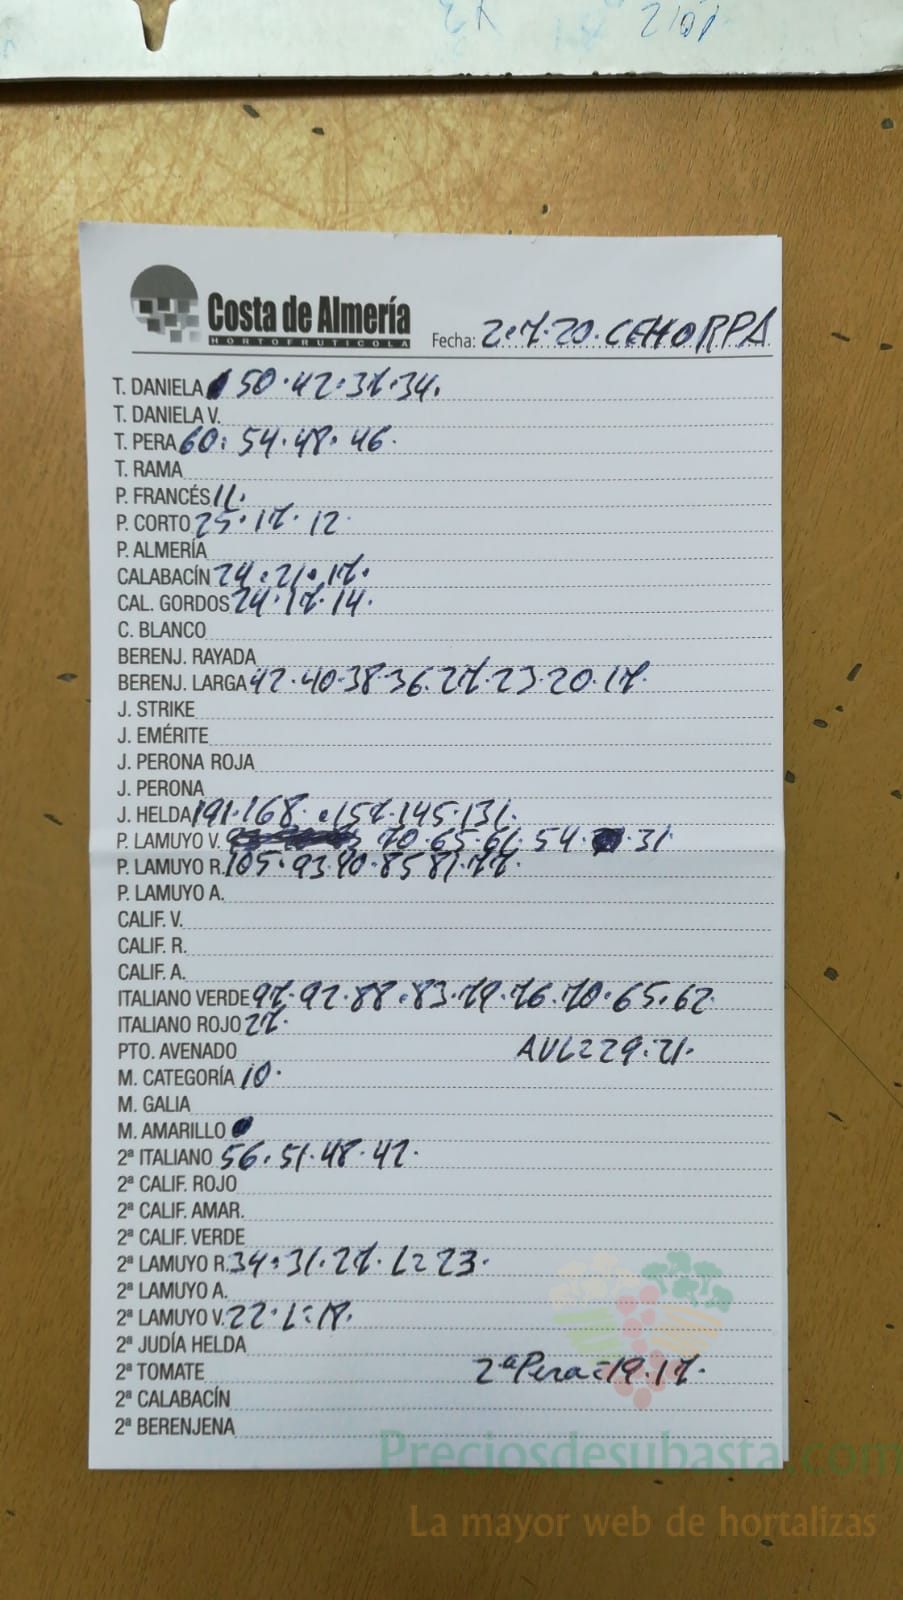 2101
Costa de Almería
HORTOFRUTICOLA
Fecha: 2.7.20. CEHORPA
T. DANIELA 50.42.37.34.
T. DANIELA V.
T. PERA 60. 54.48. 46.
T. RAMA
P. FRANCÉS 11.
P. CORTO 25.17. 12
P. ALMERÍA
CALABACÍN 24.21.17.
CAL. GORDOS 24.17.14.
C. BLANCO
BERENJ. RAYADA
BERENJ. LARGA 42.40.38.36.27.23.20.17.
J. STRIKE
J. EMÉRITE
J. PERONA ROJA
J. PERONA
J. HELDA 191.168. .157.145.131.
P. LAMUYO V. 70.65.61.54. 31.
P. LAMUYO R. 105.93.90.85 81.77.
P. LAMUYO A.
CALIF. V.
CALIF. R.
CALIF. A.
ITALIANO VERDE 97.92.88.83.79.76.70.65.62
ITALIANO ROJO 27.
PTO. AVENADO AVL=29.21.
M. CATEGORÍA 10.
M. GALIA
M. AMARILLO
2ª ITALIANO 56.51.48.42.
2ª CALIF. ROJO
2ª CALIF. AMAR.
2ª CALIF. VERDE
2ª LAMUYO R. 34.31.27. L= 23.
2ª LAMUYO A.
2ª LAMUYO V. 22.L=18.
2ª JUDÍA HELDA
2ª TOMATE 2ªPera=19.17.
2ª CALABACÍN
2ª BERENJENA
Preciosdesubasta.com
La mayor web de hortalizas